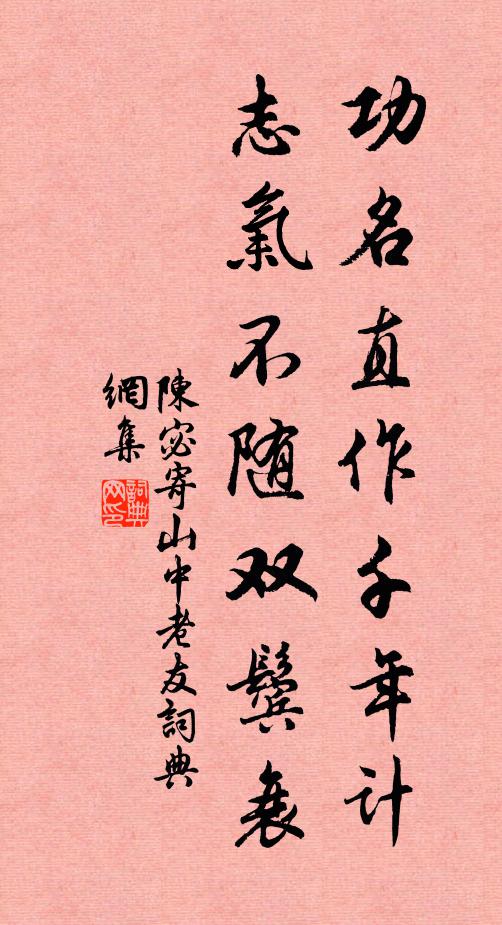 功名直作千年計
志氣不随双鬓衰
陳宓寄山中老友詞典
網集
詞典
网印